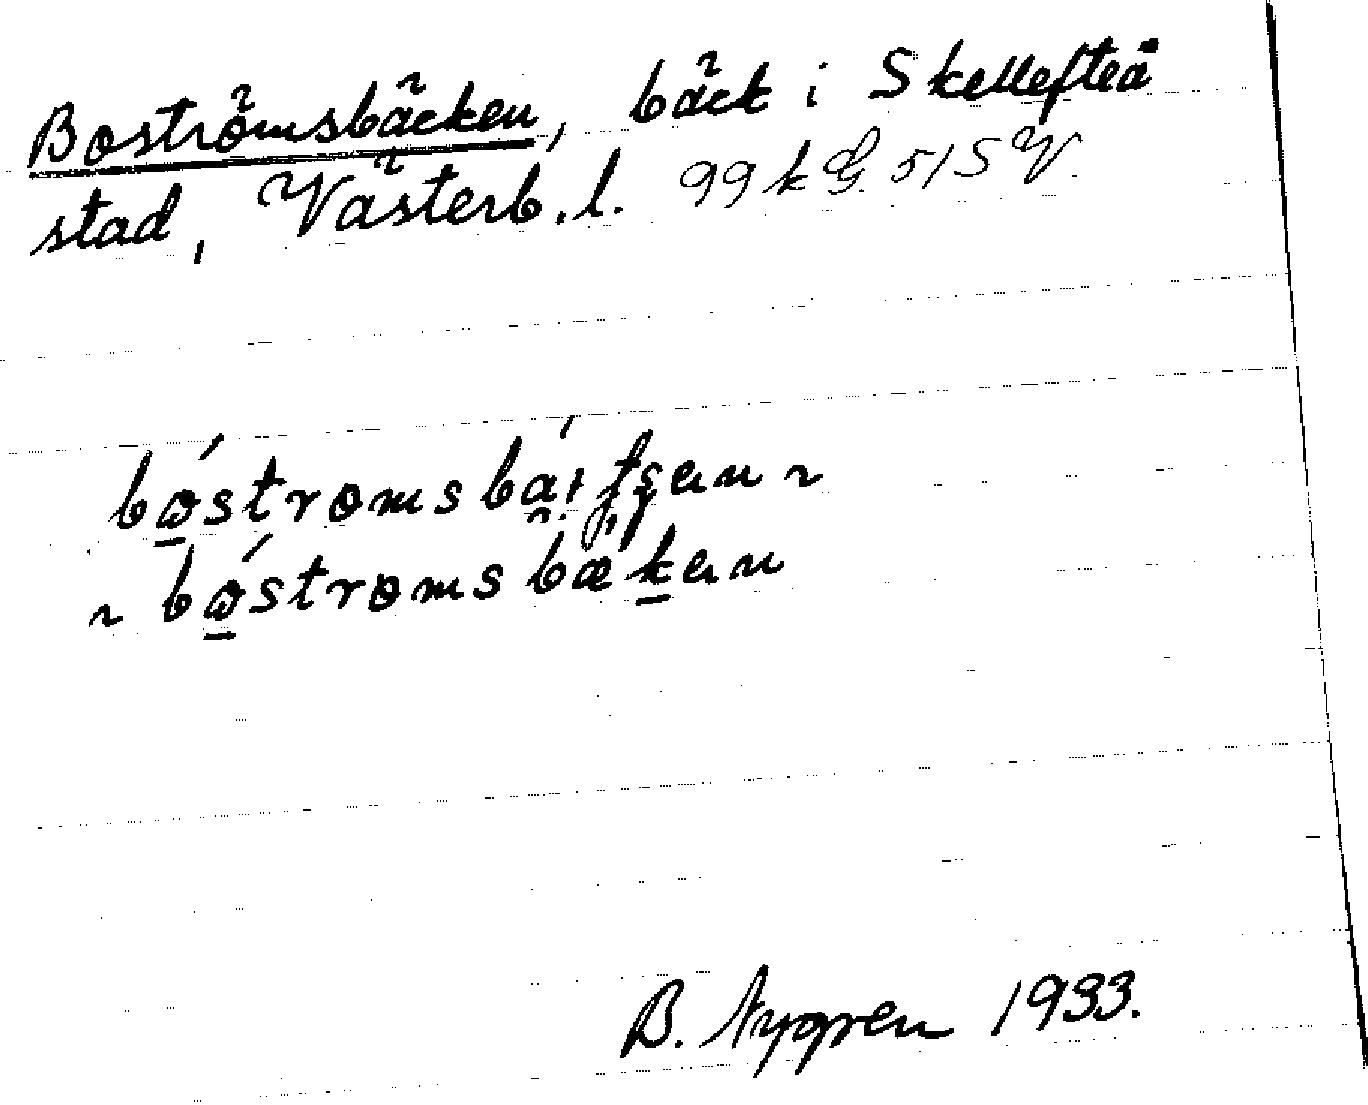 Boströmsbäcken, bäck i Skellefteå
stad, Västerb. l. 99 k G. 515 V.
bóstromsbai
~ bóstromsbækən
B. Nygren 1933.